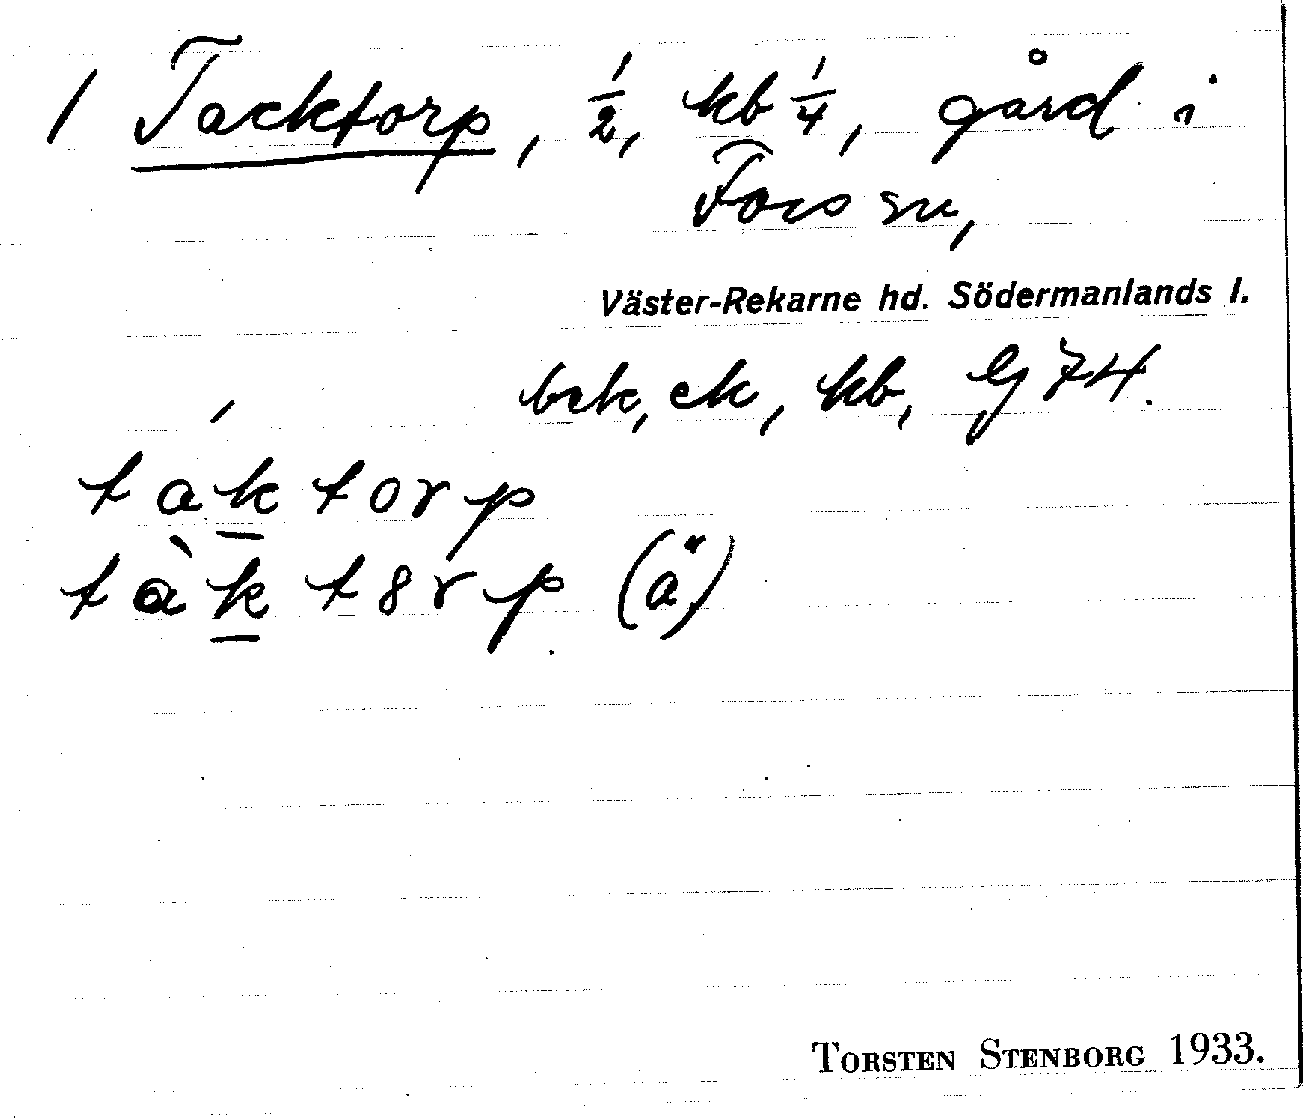 1 Tacktorp, 1/2, kb 1/4, gård i
Fors sn,
Väster-Rekarne hd. Södermanlands l.
bck, ek, kb, Ej 74.
táktorp
tàkt8rp (ä)
TORSTEN STENBORG 1933.